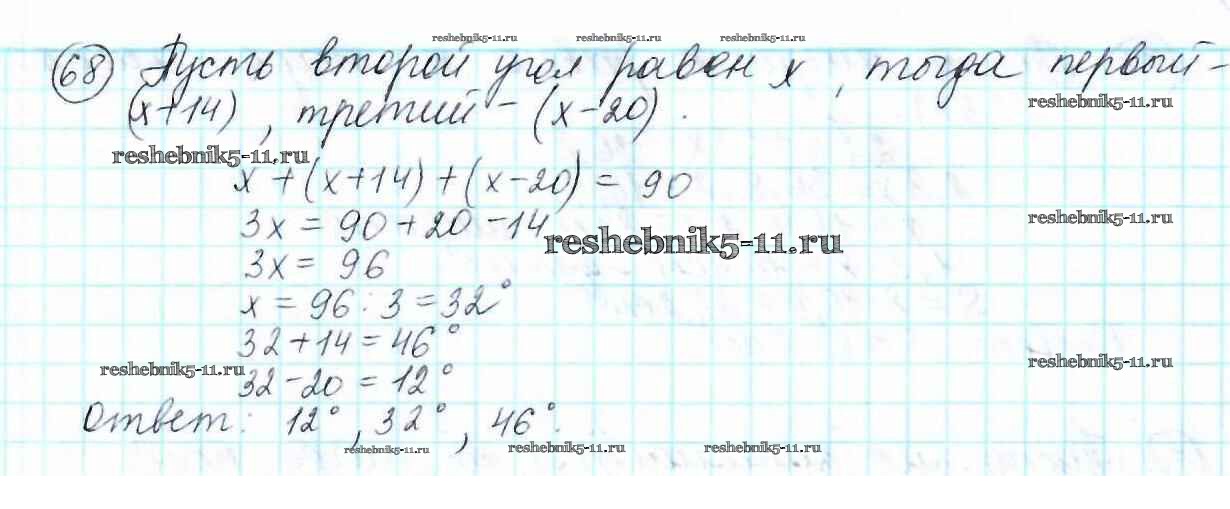 reshebnik5-11.ru reshebnik5-11.ru reshebnik5-11.ru
68 Пусть второй угол равен х, тогда первый -
(х+14), третий - (х-20).
reshebnik5-11.ru
reshebnik5-11.ru
х + (х+14) + (х-20) = 90
3х = 90 + 20 - 14
reshebnik5-11.ru
reshebnik5-11.ru
3х = 96
х = 96 : 3 = 32°
32 + 14 = 46°
reshebnik5-11.ru
reshebnik5-11.ru
32 - 20 = 12°
Ответ: 12°, 32°, 46°.
reshebnik5-11.ru reshebnik5-11.ru reshebnik5-11.ru